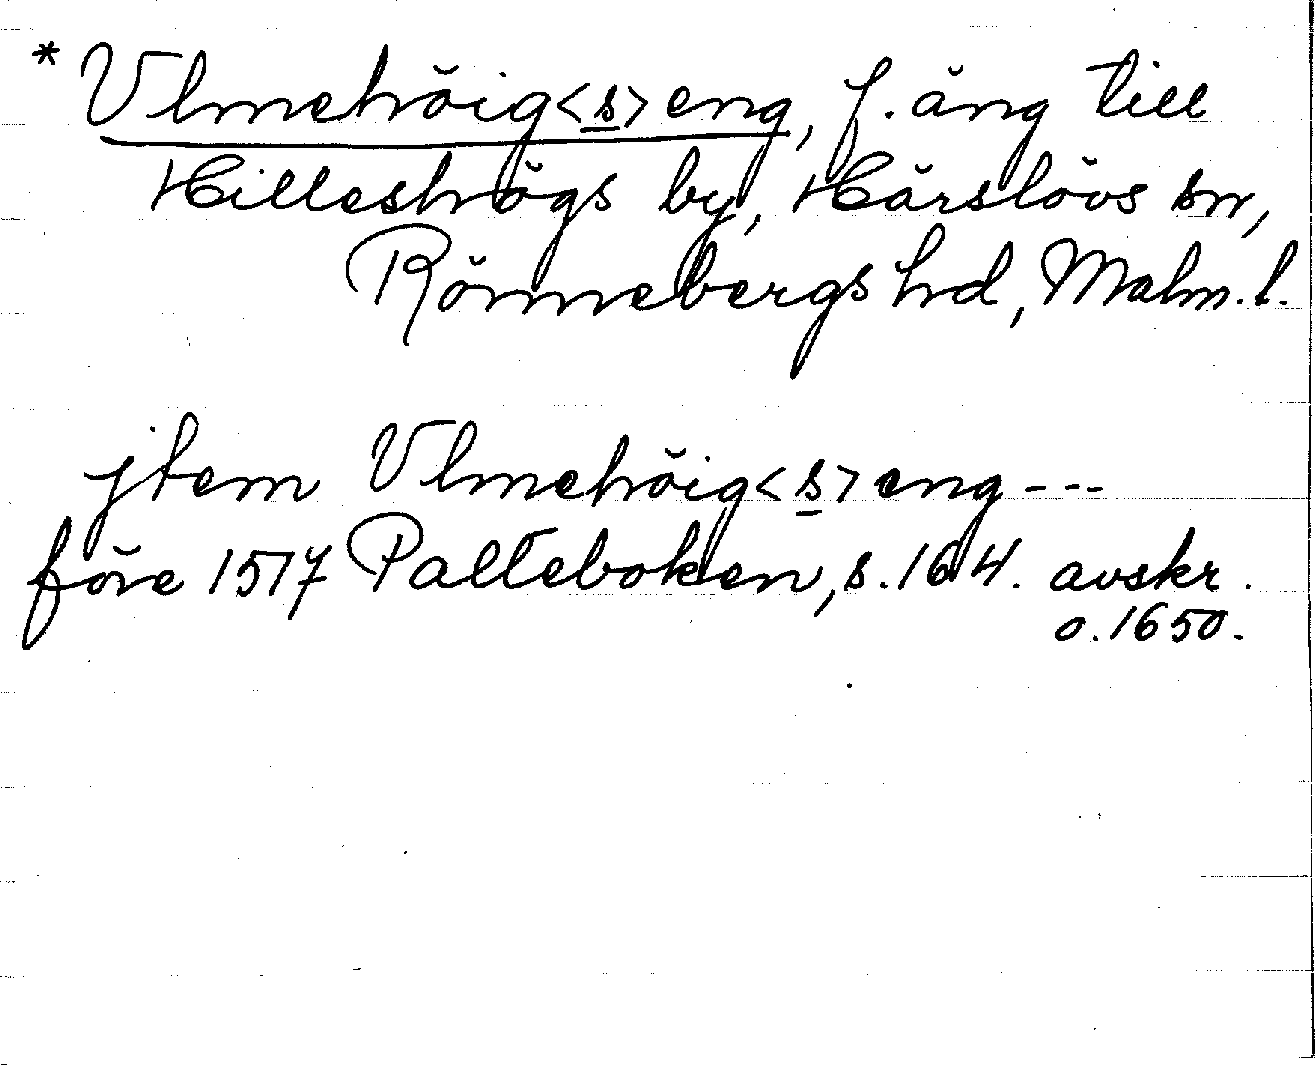 * Vlmehöig<s>eng, f. äng till
Hilleshögs by, Härslövs sn,
Rönnebergs hd, Malm. l.
jtem Vlmehöig<s>eng ---
före 1517 Palteboken, s. 164. avskr.
o. 1650.